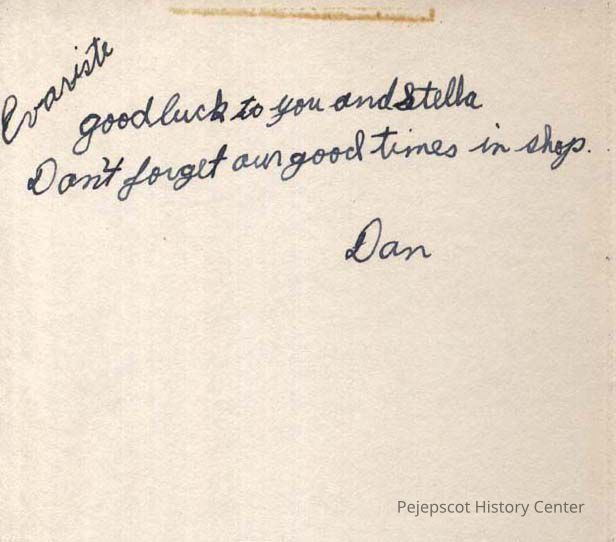 Evariste
good luck to you and Stella
Don't forget our good times in shop.
Dan
Pejepscot History Center